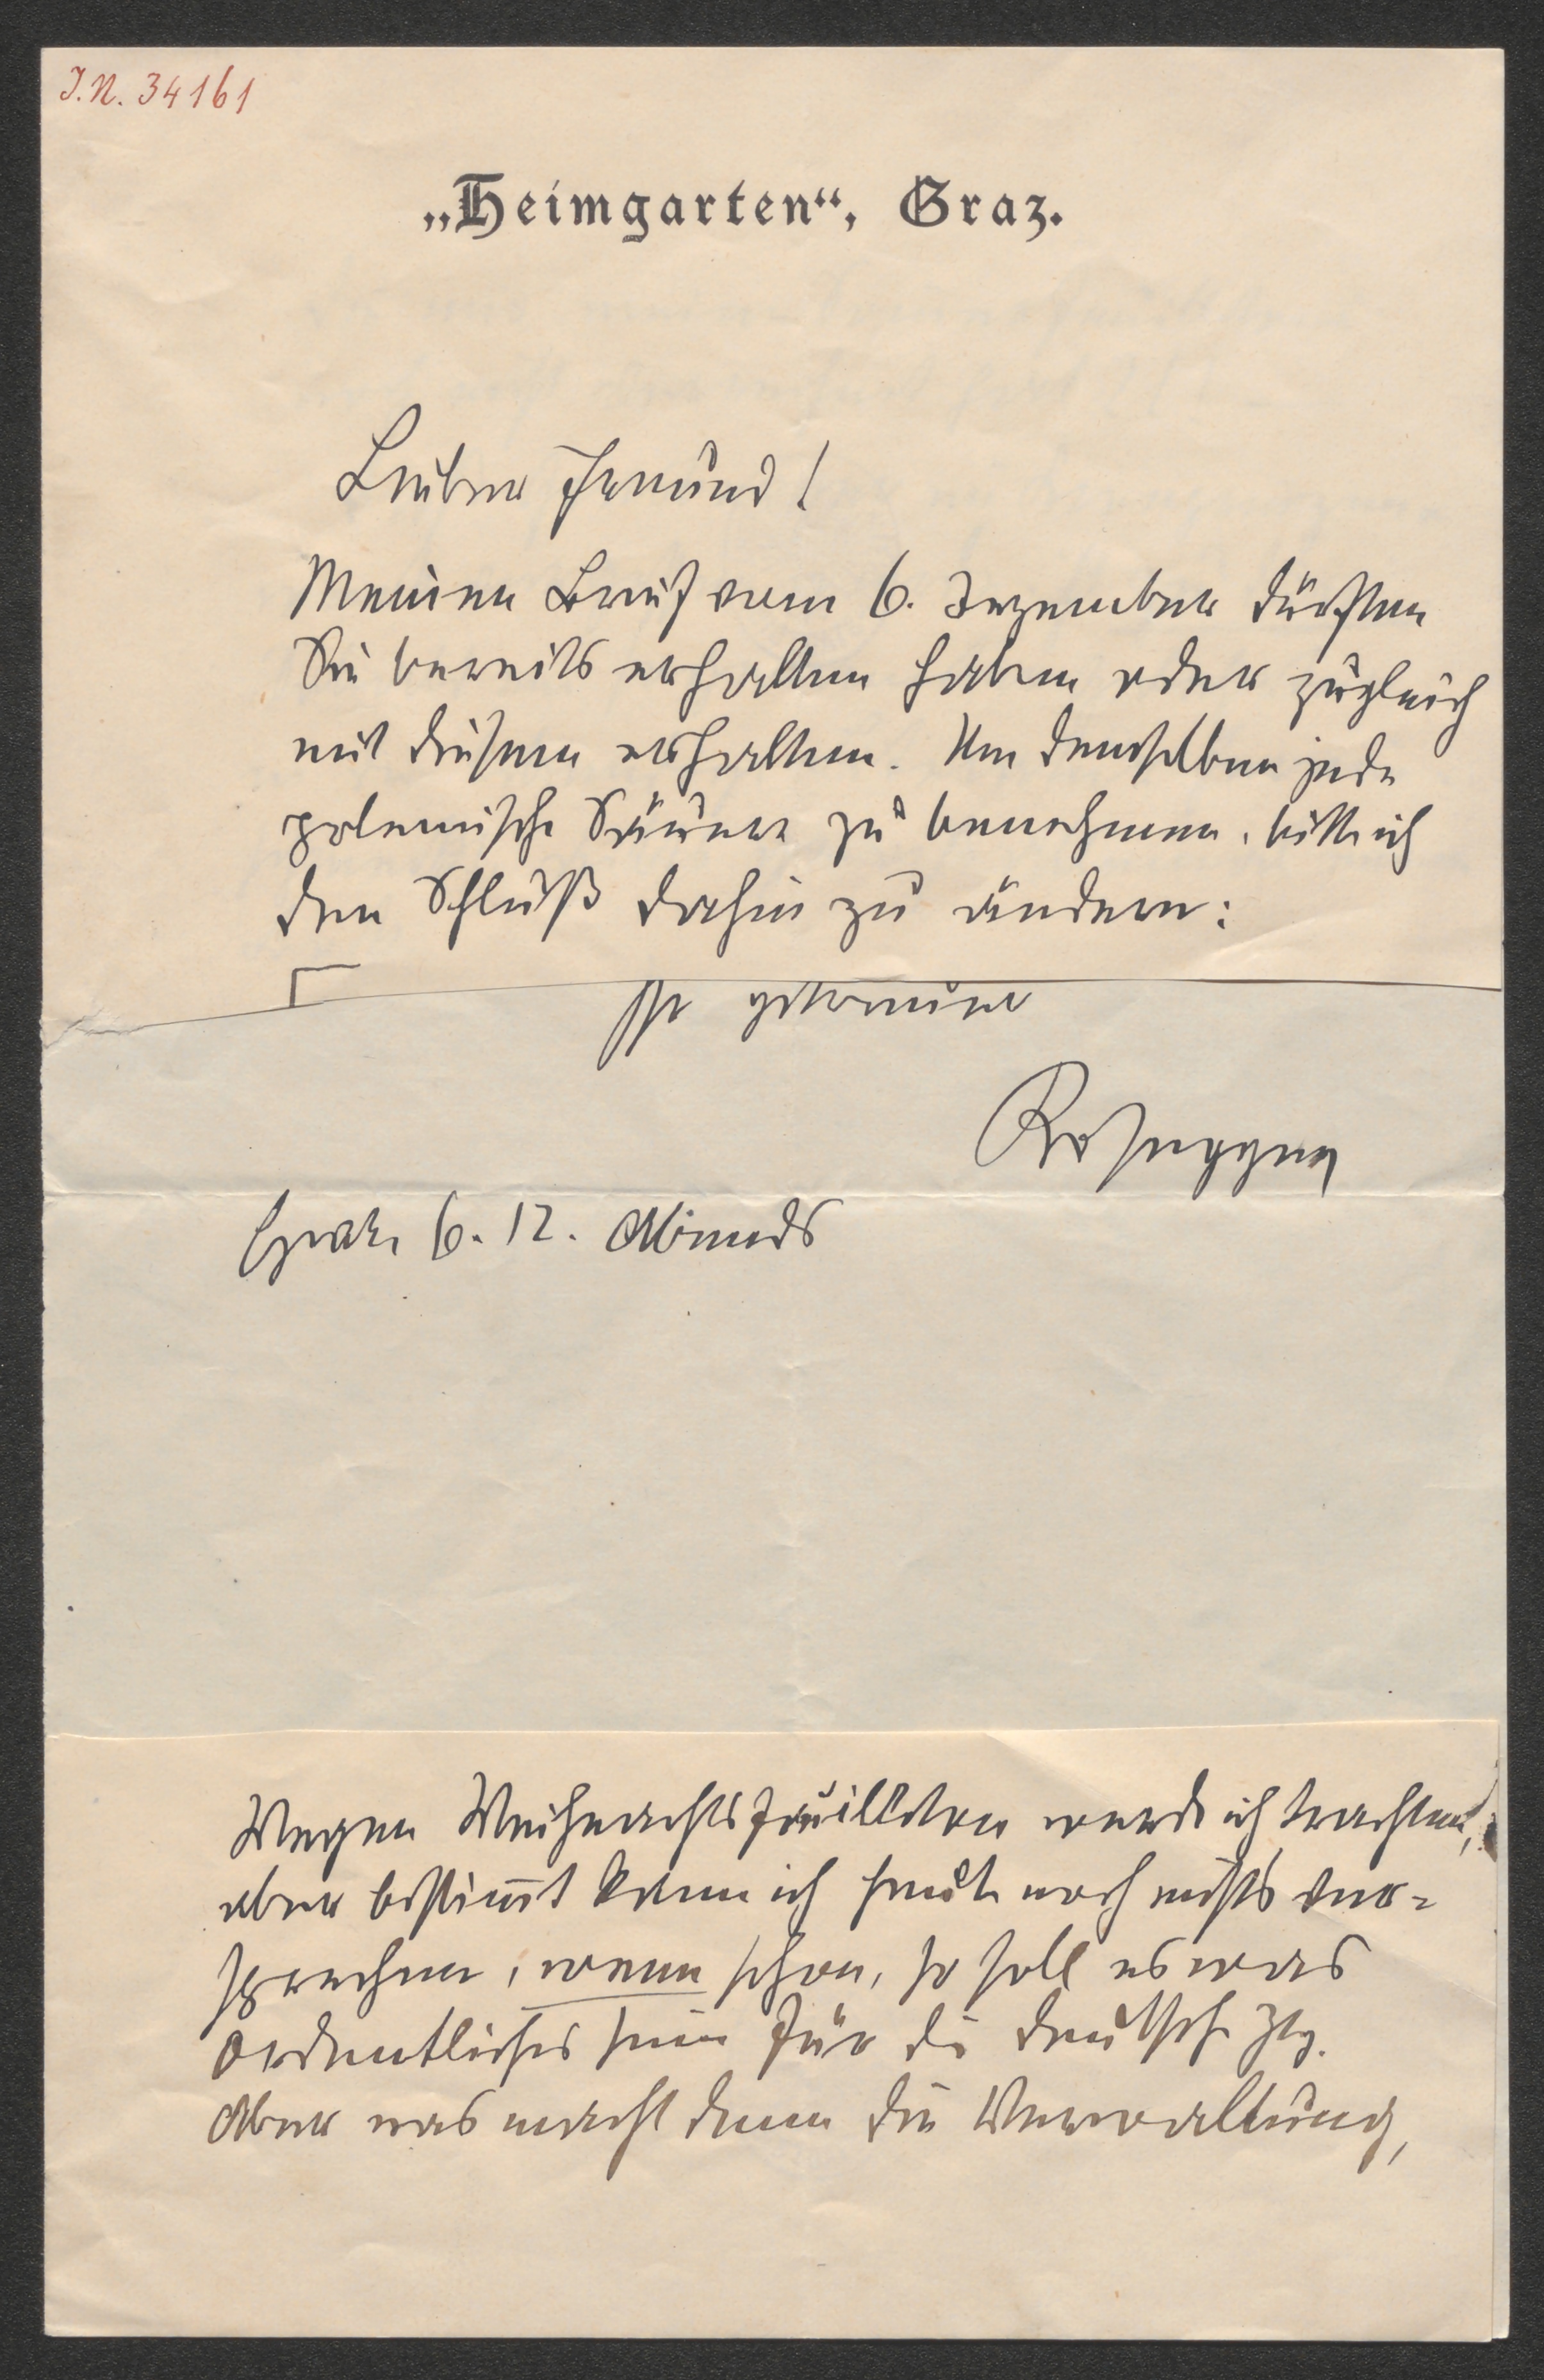 J.N. 34161
„Heimgarten“, Graz.
Lieber Freund!
Meinen Brief vom 6. Dezember dürften
Sie bereits erhalten haben oder zugleich
mit diesem erhalten. Um demselben jede
polemische Säure zu benehmen, bitte ich
den Schluß dahin zu ändern:
Ihr getreuer
Rosegger
Graz, 6. 12. Abends
Wegen Weihnachtsfeuilleton werde ich trachten,
aber bestimmt kann ich heute noch nichts ver-
sprechen, wenn schon, so soll es was
Ordentliches sein für die Deutsche Ztg.
Aber was macht denn die Verwaltung,